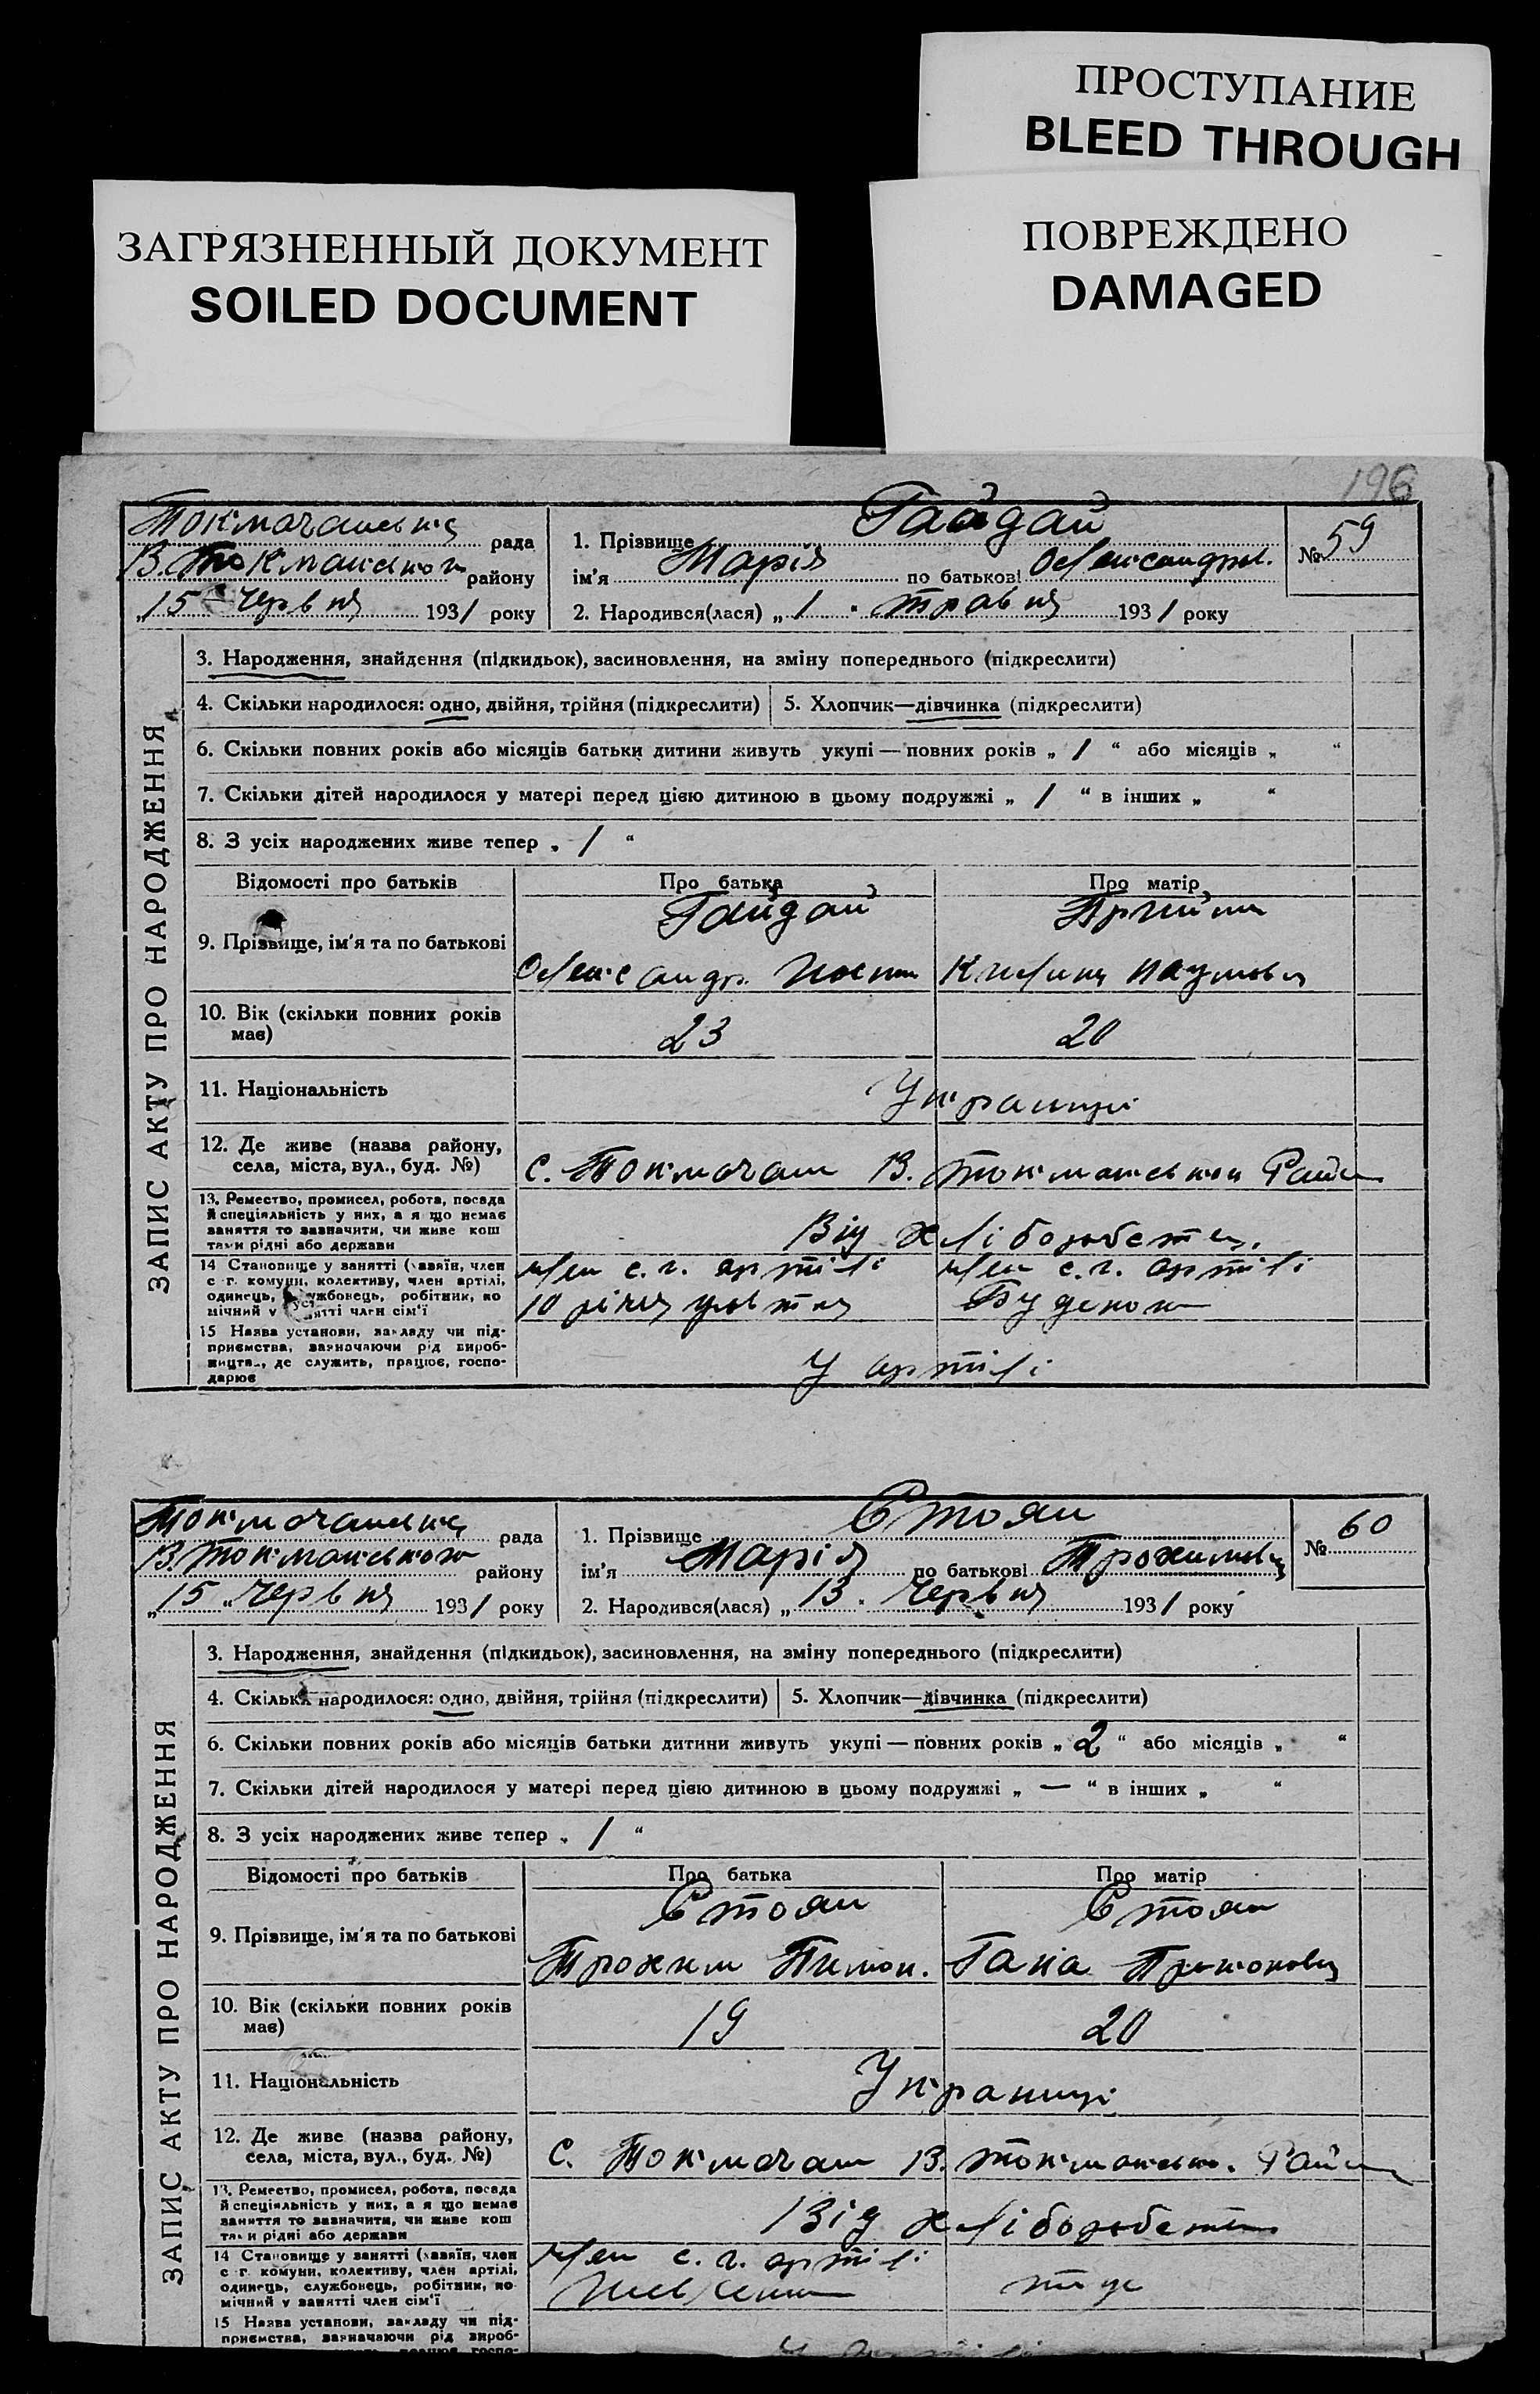 ПРОСТУПАНИЕ
BLEED THROUGH
ЗАГРЯЗНЕННЫЙ ДОКУМЕНТ
SOILED DOCUMENT
ПОВРЕЖДЕНО
DAMAGED
196
Токмачанська рада
В. Токмацького району
„15 червня 1931 року
1. Прізвище Гайдай
ім'я Марія по батькові Олександрів.
2. Народився(лася) „1" травня 1931 року
№ 59
ЗАПИС АКТУ ПРО НАРОДЖЕННЯ
3. Народження, знайдення (підкидьок), засиновлення, на зміну попереднього (підкреслити)
4. Скільки народилося: одно, двійня, трійня (підкреслити) 5. Хлопчик—дівчинка (підкреслити)
6. Скільки повних років або місяців батьки дитини живуть укупі — повних років „ 1 “ або місяців „ “
7. Скільки дітей народилося у матері перед цією дитиною в цьому подружжі „ 1 “ в інших „ “
8. З усіх народжених живе тепер „ 1 “
Відомості про батьків Про батька Про матір
9. Прізвище, ім'я та по батькові
Гайдай
Олександр
Наумовна
10. Вік (скільки повних років має) 23 20
11. Національність Українці
12. Де живе (назва району, села, міста, вул., буд. №) с. Токмачан В. Токмацького Райо
13. Ремество, промисел, робота, посада й спеціяльність у них, а я що немає заняття то зазначити, чи живе кош тами рідні або держави
Від хліборобства
14 Становище у занятті (хазяїн, член с г. комуни, колективу, член артілі, одинець, службовець, робітник, по мічний у занятті член сім'ї
член с. г. артілі член с. г. артілі
10 річча жовтня
15 Назва установи, закладу чи під-
приємства, зазначаючи рід вироб-
ництва, де служить, працює, госпо-
дарює
У артілі
Токмачанська рада
В. Токмацького району
„15" червня 1931 року
1. Прізвище Стоян
ім'я Марія по батькові Трохимівн
2. Народився(лася) „13" червня 1931 року
№ 60
ЗАПИС АКТУ ПРО НАРОДЖЕННЯ
3. Народження, знайдення (підкидьок), засиновлення, на зміну попереднього (підкреслити)
4. Скільки народилося: одно, двійня, трійня (підкреслити) 5. Хлопчик—дівчинка (підкреслити)
6. Скільки повних років або місяців батьки дитини живуть укупі — повних років „ 2 “ або місяців „ “
7. Скільки дітей народилося у матері перед цією дитиною в цьому подружжі „ — “ в інших „ “
8. З усіх народжених живе тепер „ 1 “
Відомості про батьків Про батька Про матір
9. Прізвище, ім'я та по батькові
Стоян Стоян
Трохим Пимон. Гана
10. Вік (скільки повних років має) 19 20
11. Національність Українці
12. Де живе (назва району, села, міста, вул., буд. №) С. Токмачан В. Токмацьк. Райо
13. Ремество, промисел, робота, посада й спеціяльність у них, а я що немає заняття то зазначити, чи живе кош тами рідні або держави
Від хліборобства
14 Становище у занятті (хазяїн, член с г. комуни, колективу, член артілі, одинець, службовець, робітник, по мічний у занятті член сім'ї
член с. г. артілі
Шевченка
15 Назва установи, закладу чи під-
приємства, зазначаючи рід вироб-